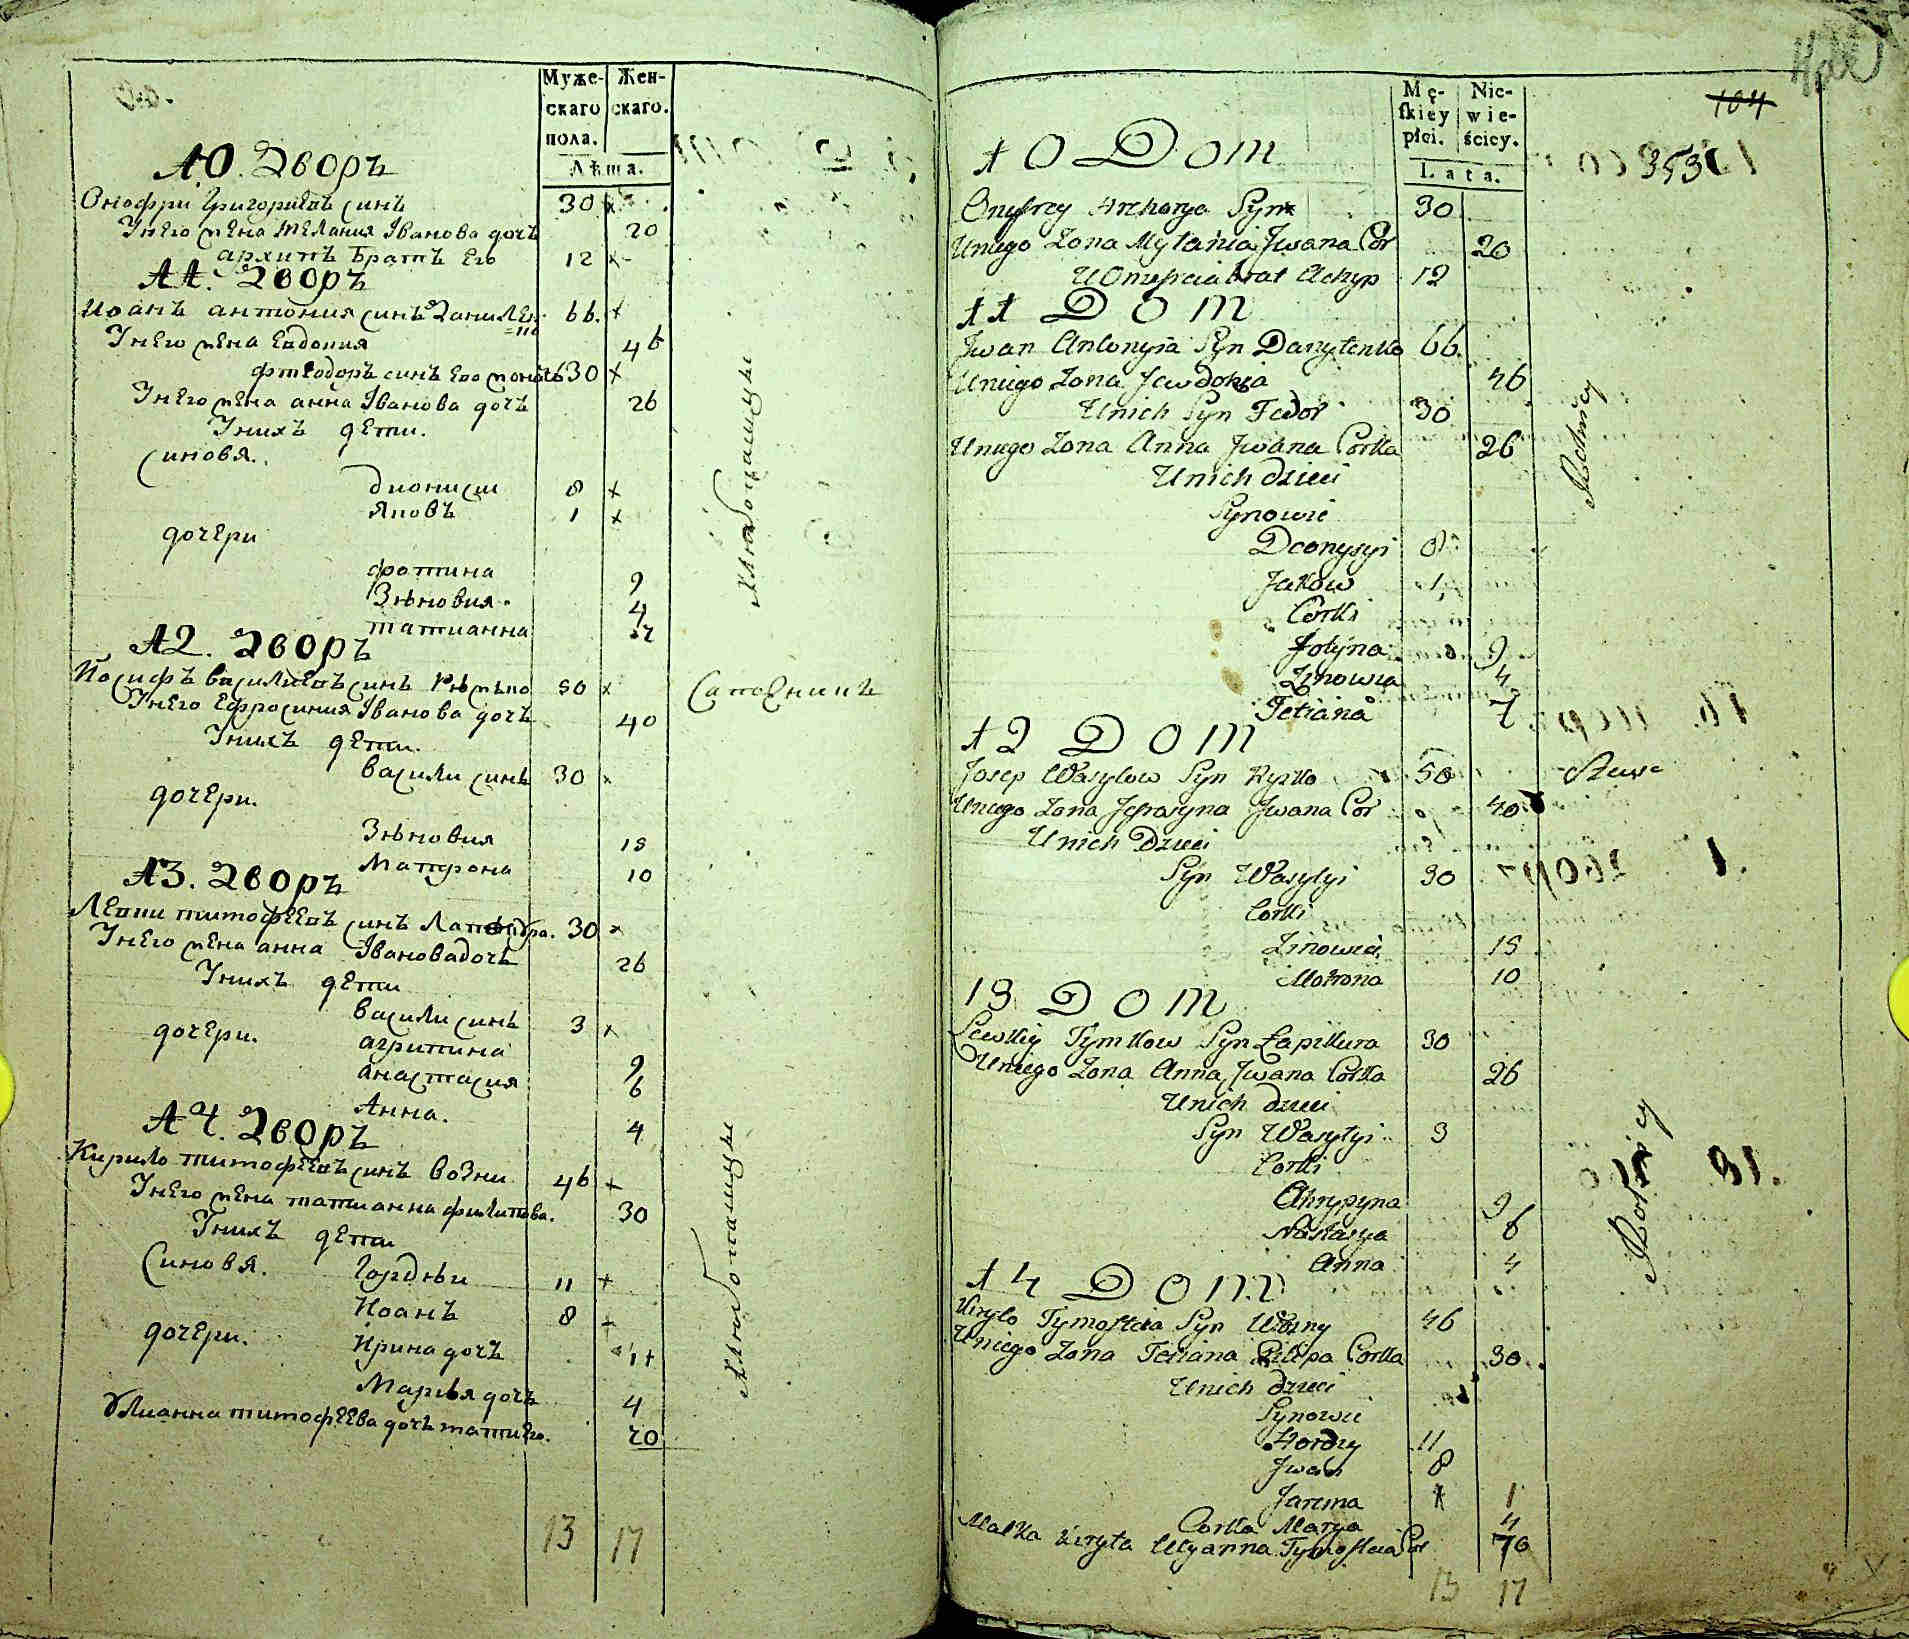 Муже-
скаго
пола.
Жен-
скаго.
Лѣта.
10. Дворъ
Онофри Григориевъ синъ 30
Унего жена Мелания Іванова дочъ 20
архипъ братъ его 12
11. Дворъ
Иоанъ антония синъ Данилен= 66.
=ко
Унего жена Евдокия 46
фтеодоръ синъ его 30
Унего жена анна Іванова дочъ 26
Унихъ дети.
Синовя.
Дионисии 8
Яковъ 1
дочери
фотина 9
Зѣновия. 4
татианна 7
Хлѣбопашцы
12. Дворъ
Иосифъ василиевъ синъ 50
Сапожникъ
Унего Ефросиния Іванова дочъ 40
Унихъ дети.
василии синъ 30
дочери.
Зѣновия 15
Матрона 10
13. Дворъ
Левки тимофѣевъ синъ 30
Унего жена анна Івановадочъ 26
Унихъ дети
василии синъ 3
дочери.
агрипина 9
анастасия 6
Анна. 4
14. Дворъ
Кирило тимофѣевъ синъ возни 46
Унего жена татианна филипова. 30
Унихъ дети
Синовя.
Гордѣи 11
Иоанъ 8
дочери.
Ирина дочъ
Марья дочъ 4
Улианна тимофѣева дочъ мати его. 70
Хлѣбопашцы
13 17
Mę-
skiey
płci.
Nie-
wie-
ściey.
Lata.
104
353
10 Dom
Onyfrey Syn 30
Uniego Zona Mylania Jwana Cor 20
brat Achyp 12
11 Dom
Jwan Antonyia Syn Danylenko 66.
Uniego Zona Jewdokia 46
Unich Syn Fedor 30
Uniego Zona Anna Jwana Corka 26
Unich dzieci
Synowie
Deonysyi 8
Jakow 1
Corki
Fotyna 9
Zinowia 4
Tetiana 7
Rolnicy
12 Dom
Josep Wasylow Syn 50
Uniego Zona Jefrosyna Jwana Cor 40
Unich Dzieci
Syn Wasylyi 30
Corki
Zinowia 15
Motrona 10
13 Dom
Lewkiy Tymkow Syn Łapikura 30
Uniego Zona Anna Jwana Corka 26
Unich dzieci
Syn Wasylyi 3
Corki
Ahrypyna 9
Nastasya 6
Anna 4
14 Dom
Kirylo Tymofieia Syn Wozny 46
Uniego Zona Tetiana Pilipa Corka 30
Unich dzieci
Synowie
Hordiy 11
Jwan 8
Jarema 1
Corka Marya 4
Matka Kiryła Ulyanna Tymofieia Cor 70
Rolnicy
13 17